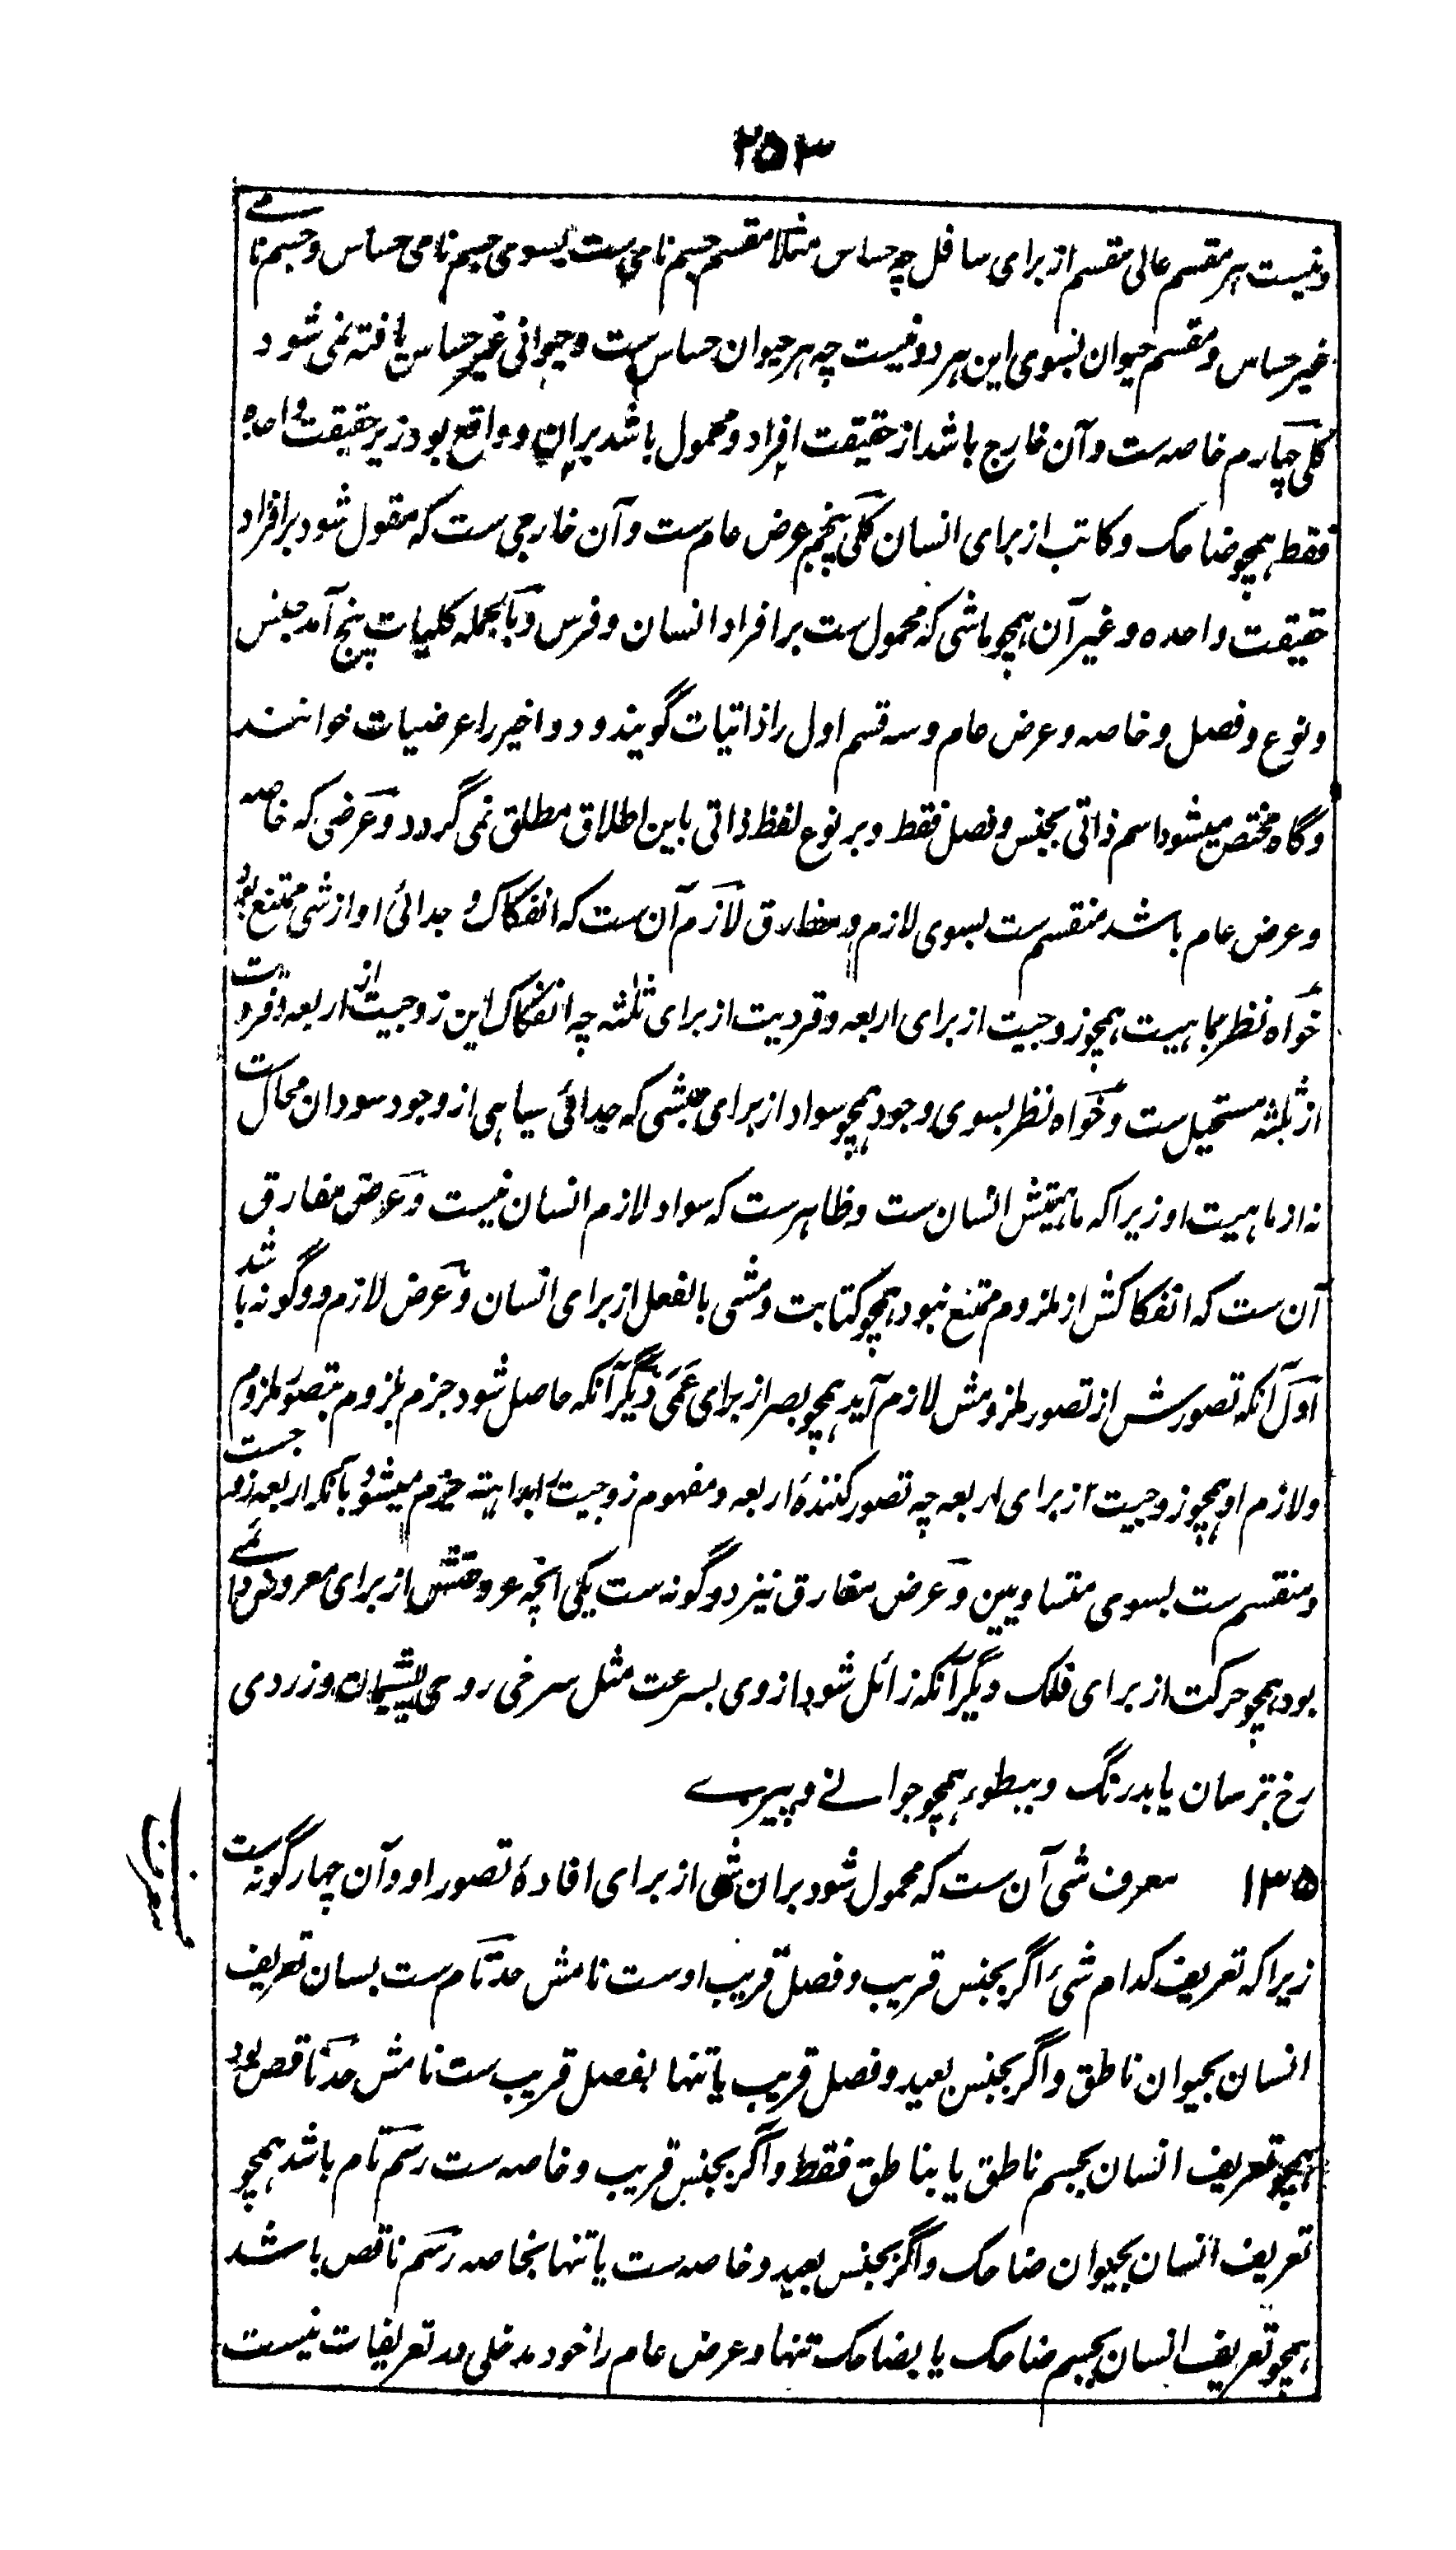 ۲۵۳
ونیست ہر مقسم عالی مقسم از برای سافل چہ حساس مثلا مقسم جسم نامی ست بسوی جسم نامی حساس و جسم نامے
غیر حساس و مقسم حیوان بسوی این ہر دو نیست چہ ہر حیوان حساس ست و حیوانی غیر حساس یافتہ نمی شود
کلی چہارم خاصہ ست و آن خارج باشد از حقیقت افراد و محمول باشد بران و واقع بود زیر حقیقت واحدہ
فقط ہمچو ضاحک و کاتب از برای انسان کلی پنجم عرض عام ست و آن خارجی ست کہ مقول شود بر افراد
حقیقت واحدہ و غیر آن ہمچو ماشی کہ محمول ست بر افراد انسان و فرس و بالجملہ کلیات پنج آمد جنس
و نوع و فصل و خاصہ و عرض عام و سہ قسم اول را ذاتیات گویند و دو اخیر را عرضیات خوانند
و گاہ مختص میشود اسم ذاتی بجنس و فصل فقط و بر نوع لفظ ذاتی باین اطلاق مطلق نمی گردد و عرضی کہ خاصہ
و عرض عام باشد منقسم ست بسوی لازم و مفارق لازم آن ست کہ انفکاک و جدائی او از شی ممتنع بود
خواہ نظر بماہیت ہمچو زوجیت از برای اربعہ و فردیت از برای ثلثہ چہ انفکاک این زوجیت از اربعہ و فردیت
از ثلثہ مستحیل ست و خواہ نظر بسوی وجود ہمچو سواد از برای حبشی کہ جدائی سیاہی از وجود سودان محال ست
نہ از ماہیت او زیرا کہ ماہیتش انسان ست و ظاہر ست کہ سواد لازم انسان نیست و عرض مفارق
آن ست کہ انفکاکش از ملزوم ممتنع نبود ہمچو کتابت و مشی بالفعل از برای انسان و عرض لازم دو گونہ باشد
اول آنکہ تصورش از تصور ملزومش لازم آید ہمچو بصر از برای عمی دیگر آنکہ حاصل شود جزم بلزوم بتصور ملزوم
و لازم او ہمچو زوجیت از برای اربعہ چہ تصور کنندۂ اربعہ و مفہوم زوجیت را بداہیتہ جزم میشود بآنکہ اربعہ زوجست
و منقسم ست بسوی متساویین و عرض مفارق نیز دو گونہ ست یکی آنچہ عروضش از برای معروض دائمے
بود ہمچو حرکت از برای فلک دیگر آنکہ زائل شود از وی بسرعت مثل سرخی روی پشیمان و زردی
رخ ترسان یا بدرنگ و ببطوء ہمچو جوانے و پیرے
۱۳۵ معرف شی آن ست کہ محمول شود بران شی از برای افادۂ تصور او و آن چہار گونہ ست
زیرا کہ تعریف کدام شئ اگر بجنس قریب و فصل قریب اوست نامش حد تام ست بسان تعریف
انسان بحیوان ناطق و اگر بجنس بعید و فصل قریب یا تنہا بفصل قریب ست نامش حد ناقص بود
ہمچو تعریف انسان بجسم ناطق یا بناطق فقط و اگر بجنس قریب و خاصہ ست رسم تام باشد ہمچو
تعریف انسان بحیوان ضاحک و اگر بجنس بعید و خاصہ ست یا تنہا بخاصہ رسم ناقص باشد
ہمچو تعریف انسان بجسم ضاحک یا بضاحک تنہا و عرض عام را خود مدخلی در تعریفات نیست